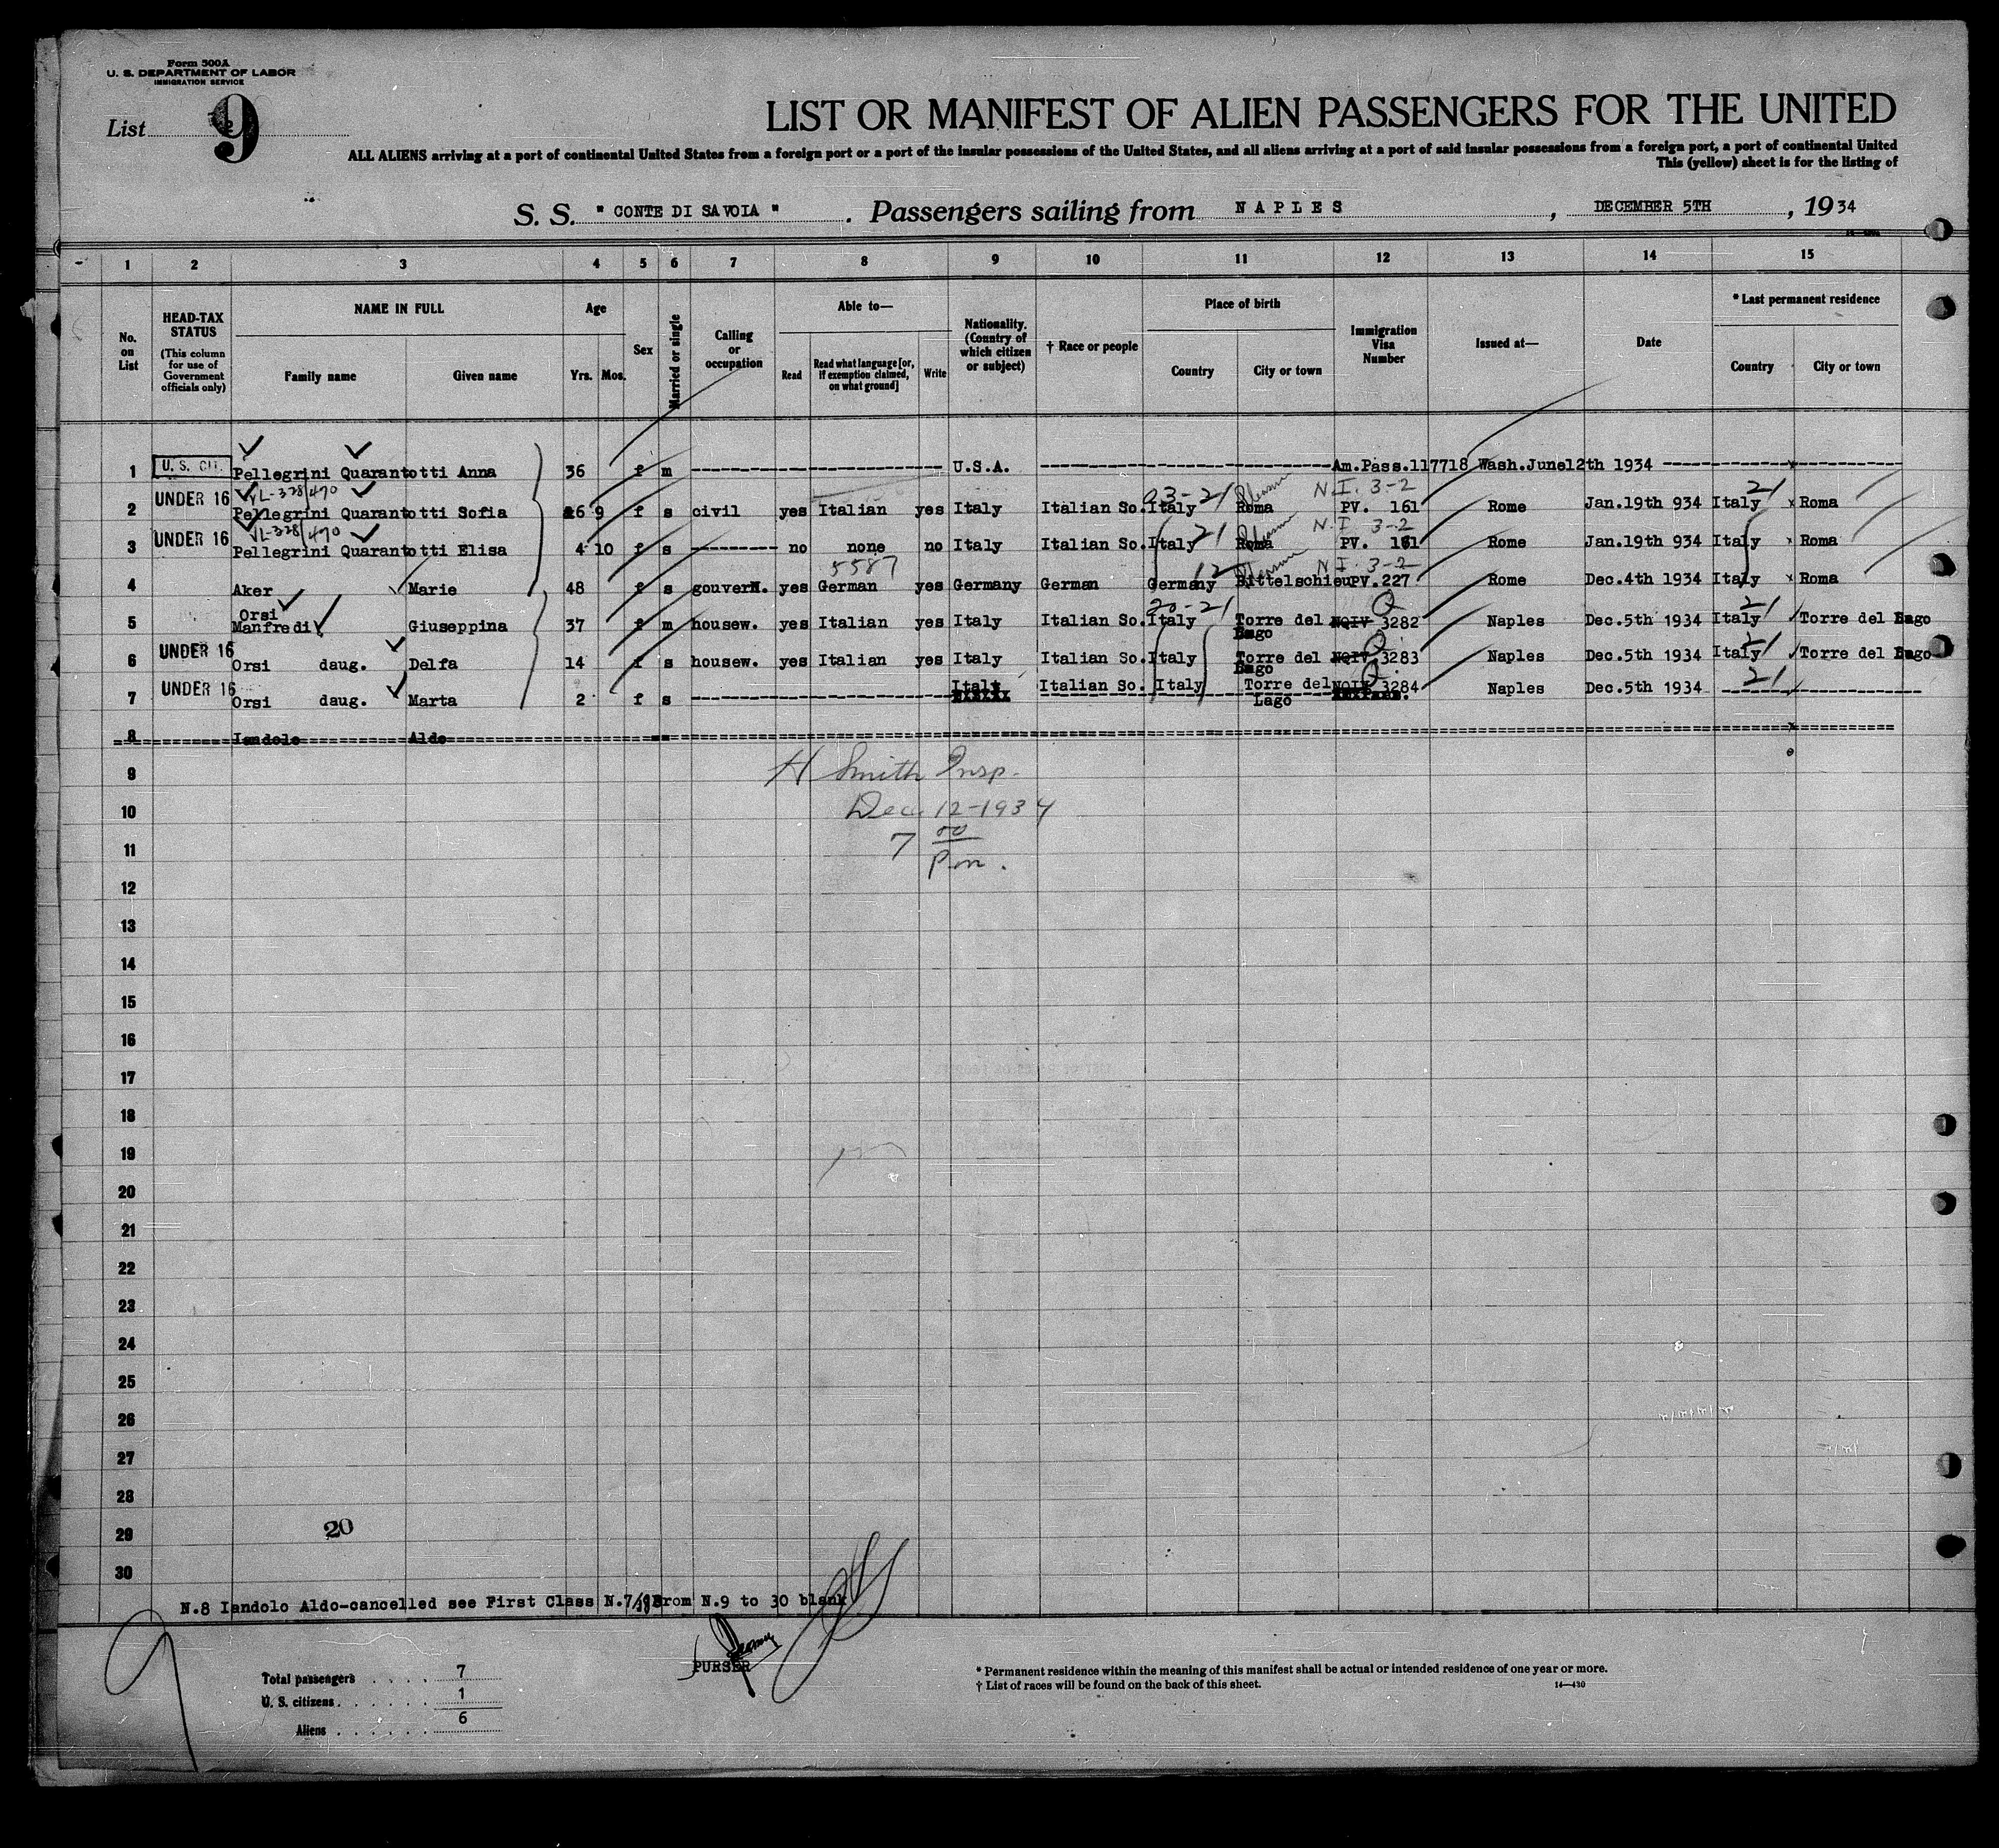 Form 500A
U. S. DEPARTMENT OF LABOR
IMMIGRATION SERVICE
List 9
LIST OR MANIFEST OF ALIEN PASSENGERS FOR THE UNITED
ALL ALIENS arriving at a port of continental United States from a foreign port or a port of the insular possessions of the United States, and all aliens arriving at a port of said insular possessions from a foreign port, a port of continental United
This (yellow) sheet is for the listing of
S. S. " CONTE DI SAVOIA " . Passengers sailing from NAPLES , DECEMBER 5TH , 19 34
1 2 3 4 5 6 7 8 9 10 11 12 13 14 15
No. on List
HEAD-TAX STATUS
(This column for use of Government officials only)
NAME IN FULL
Family name Given name
Age
Yrs. Mos.
Sex
Married or single
Calling or occupation
Able to—
Read Read what language [or, if exemption claimed, on what ground] Write
Nationality. (Country of which citizen or subject)
† Race or people
Place of birth
Country City or town
Immigration Visa Number
Issued at—
Date
* Last permanent residence
Country City or town
1 U. S. CIT. Pellegrini Quarantotti Anna 36 f m U.S.A. Am.Pass.117718 Wash.June12th 1934
VL-328/490 23-21 N.I. 3-2 21
2 UNDER 16 Pellegrini Quarantotti Sofia 6 9 f s civil yes Italian yes Italy Italian So. Italy Roma PV. 161 Rome Jan.19th 934 Italy Roma
VL-328/490 21 N.I. 3-2
3 UNDER 16 Pellegrini Quarantotti Elisa 4 10 f s no none no Italy Italian So. Italy Roma PV. 161 Rome Jan.19th 934 Italy Roma
5587 12 N.I. 3-2
4 Aker Marie 48 f s gouvern. yes German yes Germany German Germany Bittelschieu PV.227 Rome Dec.4th 1934 Italy Roma
Orsi 20-21 Q 21
5 Manfredi Giuseppina 37 m housew. yes Italian yes Italy Italian So. Italy Torre del Lago NQIV 3282 Naples Dec.5th 1934 Italy Torre del Lago
Q 21
6 UNDER 16 Orsi daug. Delfa 14 f s housew. yes Italian yes Italy Italian So. Italy Torre del Lago NQIV 3283 Naples Dec.5th 1934 Italy Torre del Lago
Q 21
7 UNDER 16 Orsi daug. Marta 2 f s Italy Italian So. Italy Torre del Lago NQIV 3284 Naples Dec.5th 1934
8 Iandolo Aldo
9
H Smith Insp.
10
Dec. 12-1934
11
7 00
P.m.
12
13
14
15
16
17
18
19
20
21
22
23
24
25
26
27
28
29
20
30
N.8 Iandolo Aldo-cancelled see First Class From N.9 to 30 blank
PURSER
Total passengers 7
U. S. citizens 1
Aliens 6
* Permanent residence within the meaning of this manifest shall be actual or intended residence of one year or more.
† List of races will be found on the back of this sheet.
14—430
9